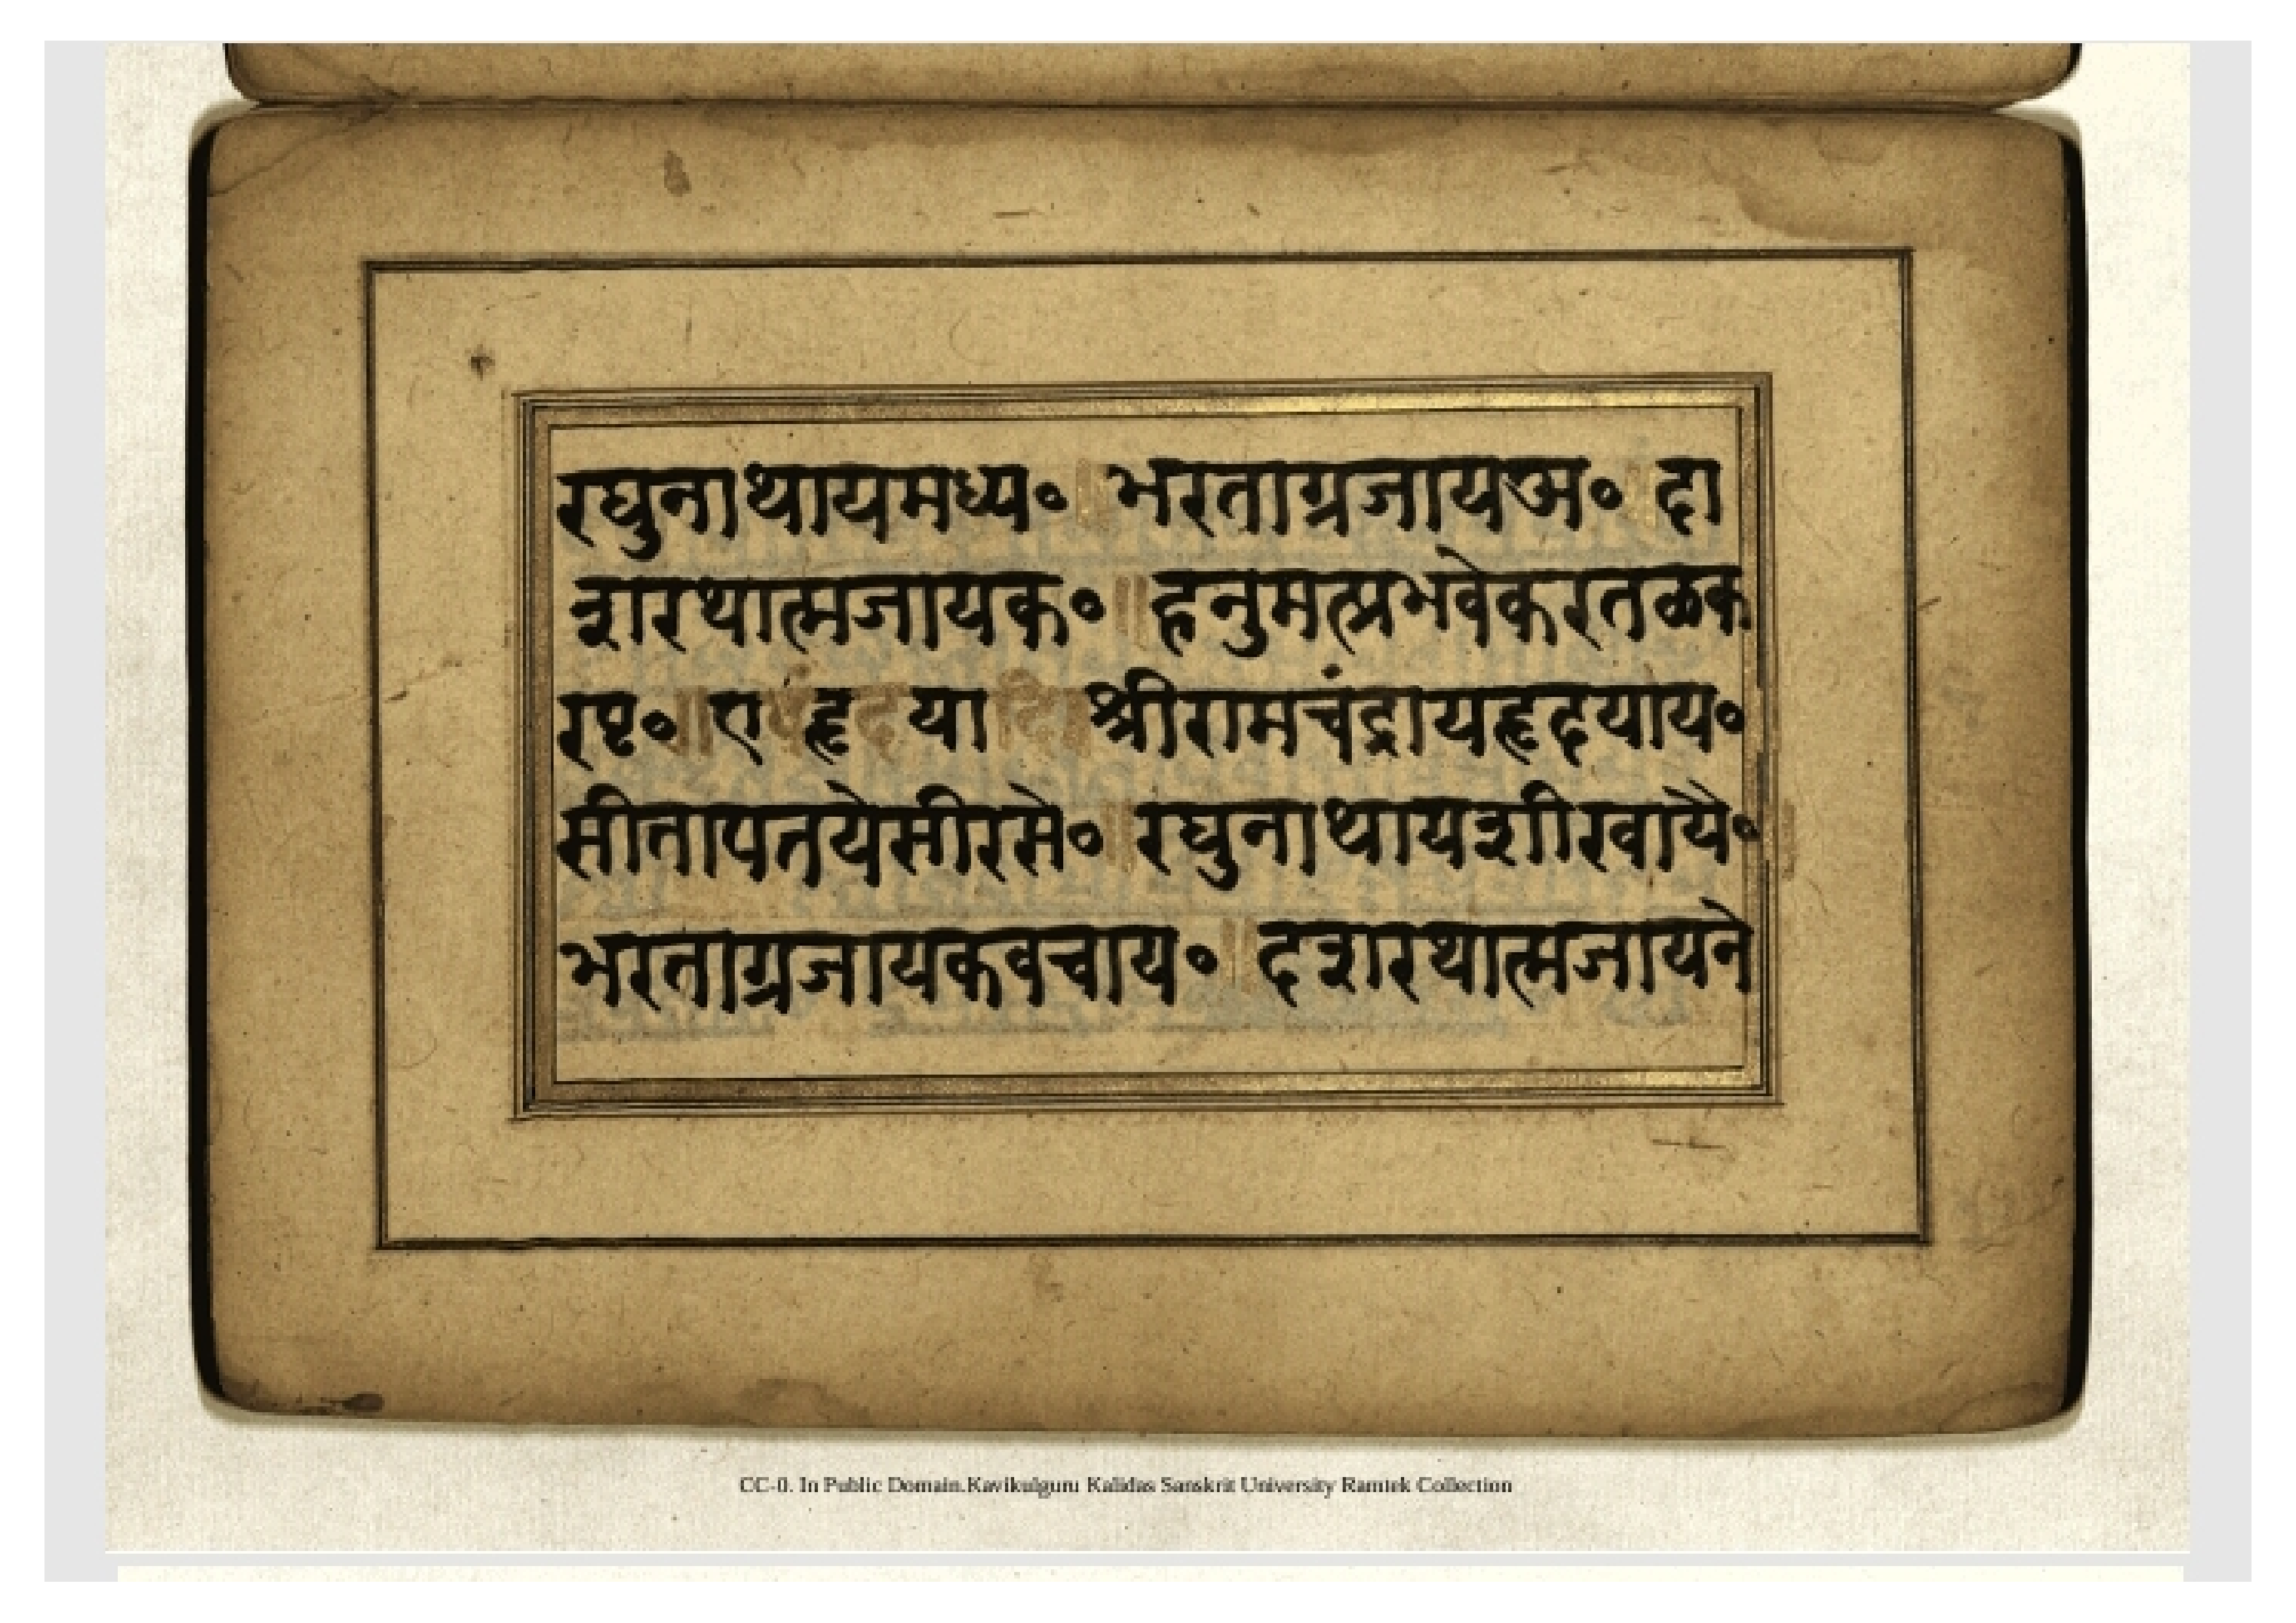 रघुनाथायमध्य॰ ॥ भरताग्रजायअ॰ ॥ दा
शरथात्मजायक॰ ॥ हनुमत्प्रभवेकरतळक
रपृ॰ ॥ एवंहृदयादि ॥ श्रीरामचंद्रायहृदयाय॰
सीतापतयेसीरसे॰ ॥ रघुनाथायशीखायै॰
भरताग्रजायकवचाय॰ ॥ दशरथात्मजायने
CC-0. In Public Domain.Kavikulguru Kalidas Sanskrit University Ramtek Collection